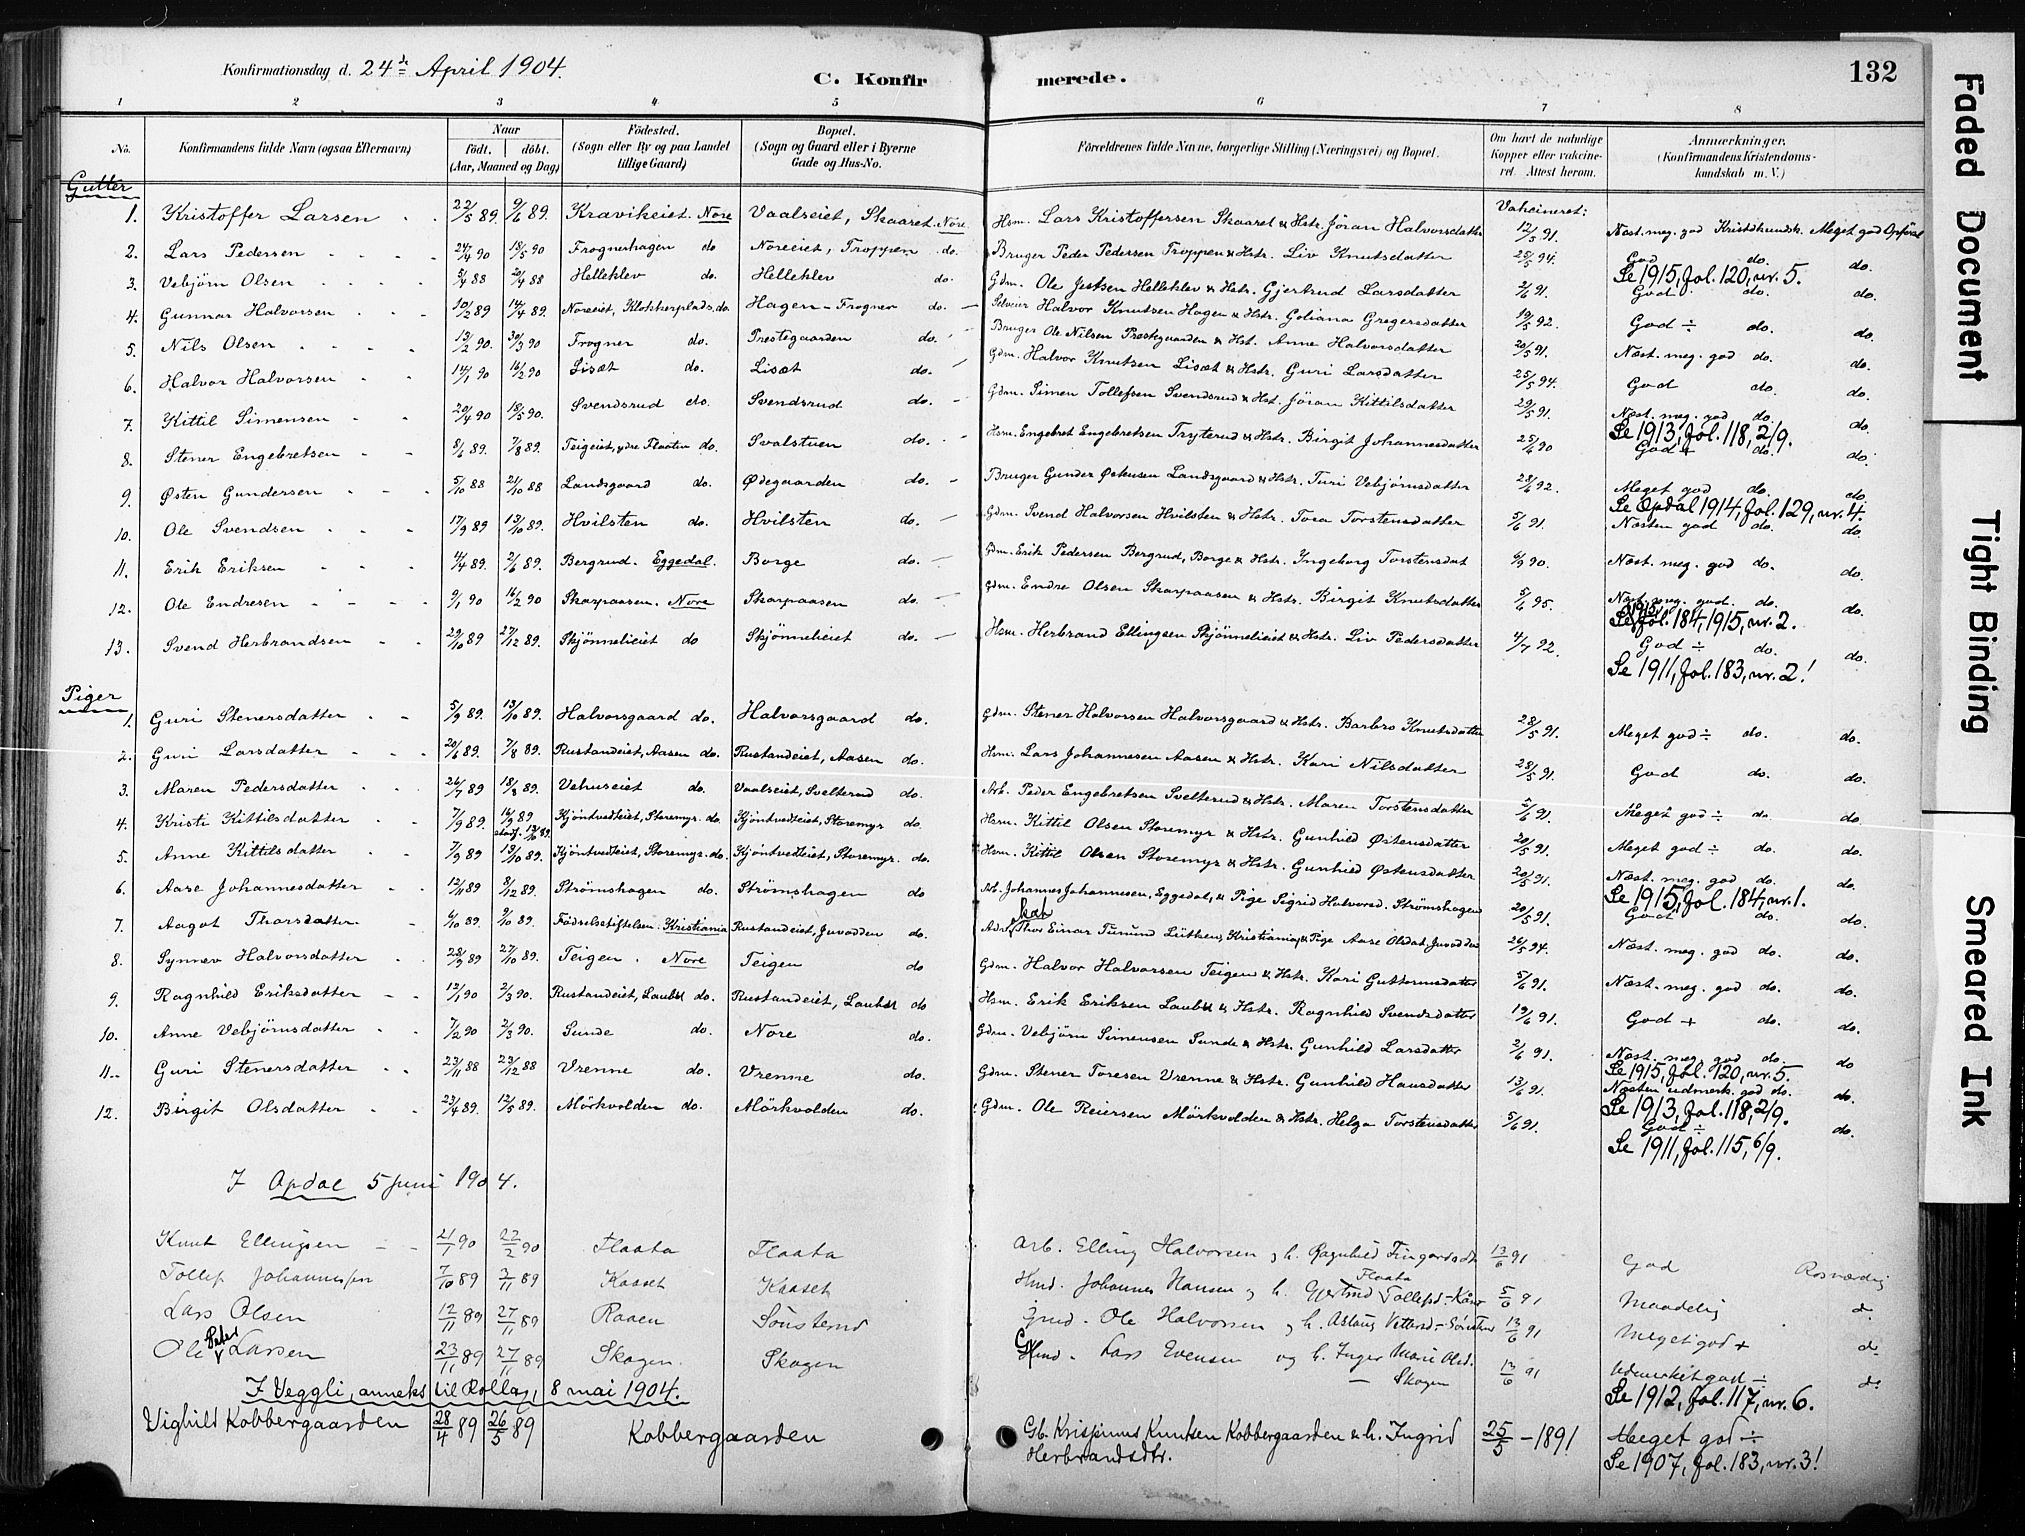 Konfirmationsdag d. 24de April 1904.
C. Konfirmerede.
132
1 2 3 4 5 6 7 8
No. Konfirmandens fulde Navn (ogsaa Efternavn) Naar født. døbt. (Aar, Maaned og Dag) Fødested. (Sogn eller By og paa Landet tillige Gaard) Bopæl. (Sogn og Gaard eller i Byerne Gade og Hus-No. Forældrenes fulde Navne, borgerlige Stilling (Næringsvei) og Bopæl. Om havt de naturlige Kopper eller vakcineret. Attest herom. Anmærkninger. (Konfirmandens Kristendomskundskab m. V.)
Gutter
Vakcineret:
1. Kristoffer Larsen 22/5 89. 9/6 89. Kravikeiet. Nore Vaalseiet, Skaaret. Nore Hsm. Lars Kristoffersen Skaaret & Hstr. Jöran Halvorsdatter 12/5 91. Næst. meg. god Kristdkundsk. Meget god Opførsel
2. Lars Pedersen 24/4 90 18/5 90 Frognerhagen do Noreeiet, Troppen do. Bruger Peder Pedersen Troppen & Hstr. Liv Knutsdatter 25/5 94. God do. do.
Se 1915, fol. 120, nr. 5.
3. Vebjörn Olsen 5/4 88 20/4 88 Helleklev do. Helleklev do. Gdm. Ole Jestsen Helleklev & Hstr. Gjertrud Larsdatter 2/6 91. God do. do.
4. Gunnar Halvorsen 10/2 89 14/4 89. Noreeiet, Klokkerplads. do. Hagen - Frogner do. Selveier Halvor Knutsen Hagen & Hstr. Goliana Gregersdatter 19/5 92. God ÷ do. do.
5. Nils Olsen 13/2 90. 30/3 90 Frogner do. Prestegaarden do. Bruger Ole Nilsen Prestegaarden & Hst. Anne Halvorsdatter 20/5 91. Næst. meg. god do. do.
6. Halvor Halvorsen 14/1 90 16/2 90 Lisæt do. Lisæt do. Gdm. Halvor Knutsen Lisæt & Hstr. Guri Larsdatter 25/5 94. God do. do.
7. Kittil Simensen 20/4 90 18/5 90. Svendsrud do. Svendsrud do. Gdm. Simen Tollefsen Svendsrud & Hst. Jöran Kittilsdatter 29/5 91. Næst. meg. god do. do.
Se 1913, fol. 118, 2/9.
8. Stener Engebretsen 8/6 89. 7/8 89. Teigeiet, ydre Flaaten do. Svalstuen do. Hsm. Engebret Engebretsen Tryterud & Hstr. Birgit Johannesdatter 25/6 90 God + do. do.
9. Østen Gundersen 5/10 88 21/10 88 Landsgaard do. Ødegaarden do. Bruger Gunder Østensen Landsgaard & Hstr. Turi Vebjörnsdatter 28/6 92. Meget god do. do.
Se Opdal 1914, fol. 129, nr. 4.
10. Ole Svendsen 17/9 89 13/10 89. Hvilsten do. Hvilsten do. Gdm. Svend Halvorsen Hvilsten & Hstr. Tora Torstensdatter 5/6 91. Næsten god do. do.
11. Erik Eriksen 4/4 89. 2/6 89. Bergrud. Eggedal. Borge do. Gdm. Erik Pedersen Bergrud, Borge & Hstr. Ingeborg Torstensdat 6/9 90. Næst. meg. god do. do.
12. Ole Endresen 9/1 90 16/2 90 Skarpaasen. Nore Skarpaasen do. Gdm. Endre Olsen Skarpaasen & Hstr. Birgit Knutsdatter 5/6 95. Næst. meg. god. do. do.
Se fol. 184, 1915, nr. 2.
13. Svend Herbrandsen 29/10 89 27/12 89. Skjönnelieiet do Skjönnelieiet do. Hsm. Herbrand Ellingsen Skjönnelieiet & Hstr. Liv Pedersdatter 4/7 92. God ÷ do. do.
Se 1911, fol. 183, nr. 2!
Piger
1. Guri Stenersdatter 5/9 89. 13/10 89. Halvorsgaard do. Halvorsgaard do. Gdm. Stener Halvorsen Halvorsgaard & Hstr. Barbro Knutsdatter 28/5 91. Meget god ÷ do. do.
2. Guri Larsdatter 20/6 89. 7/8 89. Rustandeiet, Aasen do. Rustandeiet, Aasen do. Hsm. Lars Johannesen Aasen & Hstr. Kari Nilsdatter 28/5 91. God do. do.
3. Maren Pedersdatter 26/7 89 18/8 89. Vehuseiet do. Vaalseiet, Svelterud do. Arb. Peder Engebretsen Svelterud & Hstr. Maren Torstensdatter 2/6 91. Meget god ÷ do. do.
4. Kristi Kittilsdatter 7/9 89. 14/9 89 stadf. 13/10 89. Kjöntvedteiet, Storemyr. do. Kjöntvedteiet, Storemyr do. Hsm. Kittil Olsen Storemyr & Hstr. Gunhild Østensdatter 20/5 91. Meget god ÷ do. do.
5. Anne Kittilsdatter 7/9 89 13/10 89. Kjöntvedteiet, Storemyr. do. Kjöntvedteiet, Storemyr. do. Hsm. Kittil Olsen Storemyr & Hstr. Gunhild Østensdatter 20/5 91. Næst. meg. god do. do.
Se 1915, fol. 184, nr. 1.
6. Aase Johannesdatter 12/11 89 8/12 89. Strömshagen do. Strömshagen do Arb. Johannes Johannesen, Eggedal, & Pige Sigrid Halvorsd. Strömshagen 20/5 91. God do. do.
7. Aagot Thorsdatter 4/10 89. 9/10 89. Födselsstiftelsen. Kristiania Rustandeiet, Juvodden do. Thor Einar Lütken, Kristiania, & Pige Aase Olsdat. Juvodden 26/5 94. Næst. meg. god do. do.
8. Synnev Halvorsdatter 28/9 89 27/10 89. Teigen. Nore Teigen do Gdm. Halvor Halvorsen Teigen & Hstr. Kari Guttormsdatter 5/6 91. Næst. meg. god do. do.
9. Ragnhild Eriksdatter 12/1 90 2/3 90. Rustandeiet, Laubst do. Rustandeiet, Laubst do Hsm. Erik Eriksen Laubst & Hstr. Ragnhild Svendsdatter 19/6 91. God + do. do.
10. Anne Vebjörnsdatter 7/2 90 2/3 90. Sunde do. Nore do. Gdm. Vebjörn Simensen Sunde & Hstr. Gunhild Larsdatter 2/6 91. Næst. meg. god do. do
Se 1915, fol. 120, nr. 5.
11. Guri Stenersdatter 23/11 88 23/12 88 Vrenne do. Vrenne do. Gdm. Stener Toresen Vrenne & Hstr. Gunhild Hansdatter 13/6 91. Næsten udmerk. god do. do.
Se 1913, fol. 118, 2/9.
12. Birgit Olsdatter 23/4 89. 12/5 89. Mörkvolden do. Mörkvolden do. Gdm. Ole Reiersen Mörkvolden & Hstr. Helga Torstensdatter 5/6 91. God ÷ do.
Se 1911, fol. 115, 6/9.
I Opdal 5 juni 1904.
Knut Ellingsen 21/1 90 22/2 90 Flaata Flaata Arb. Elling Halvorsen og h. Ragnhild Fingarsdt. Flaata 13/6 91 God Rosværdig
Tollef Johannessen 7/10 89 3/11 89 Kaaset Kaaset Hmd. Johannes Hansen og h. Gjertrud Tollefsd. 5/6 91 Maadelig d.
Lars Olsen 12/11 89 27/11 89 Raaen Sönsterud Gmd. Ole Halvorsen og h. Aslaug 13/6 91 Meget god + d.
Ole Peder Larsen 23/11 89 27/11 89 Skogen. Skogen Lars Evensen og h. Inger Marie Olsd. - Skogen 13/6 91 Udmerket god ÷ d.
Se 1912, fol. 117, nr. 6.
I Veggli, anneks til Rollag, 8 mai 1904.
Vighild Kobbergaarden 28/4 89 26/5 89 Kobbergaarden Gb. Krispinus Knutsen Kobbergaarden & h. Ingrid Herbrandsdtr. 25/5 - 1891 Meget god ÷
Se 1907, fol. 183, nr. 3!
Faded Document
Tight Binding
Smeared Ink